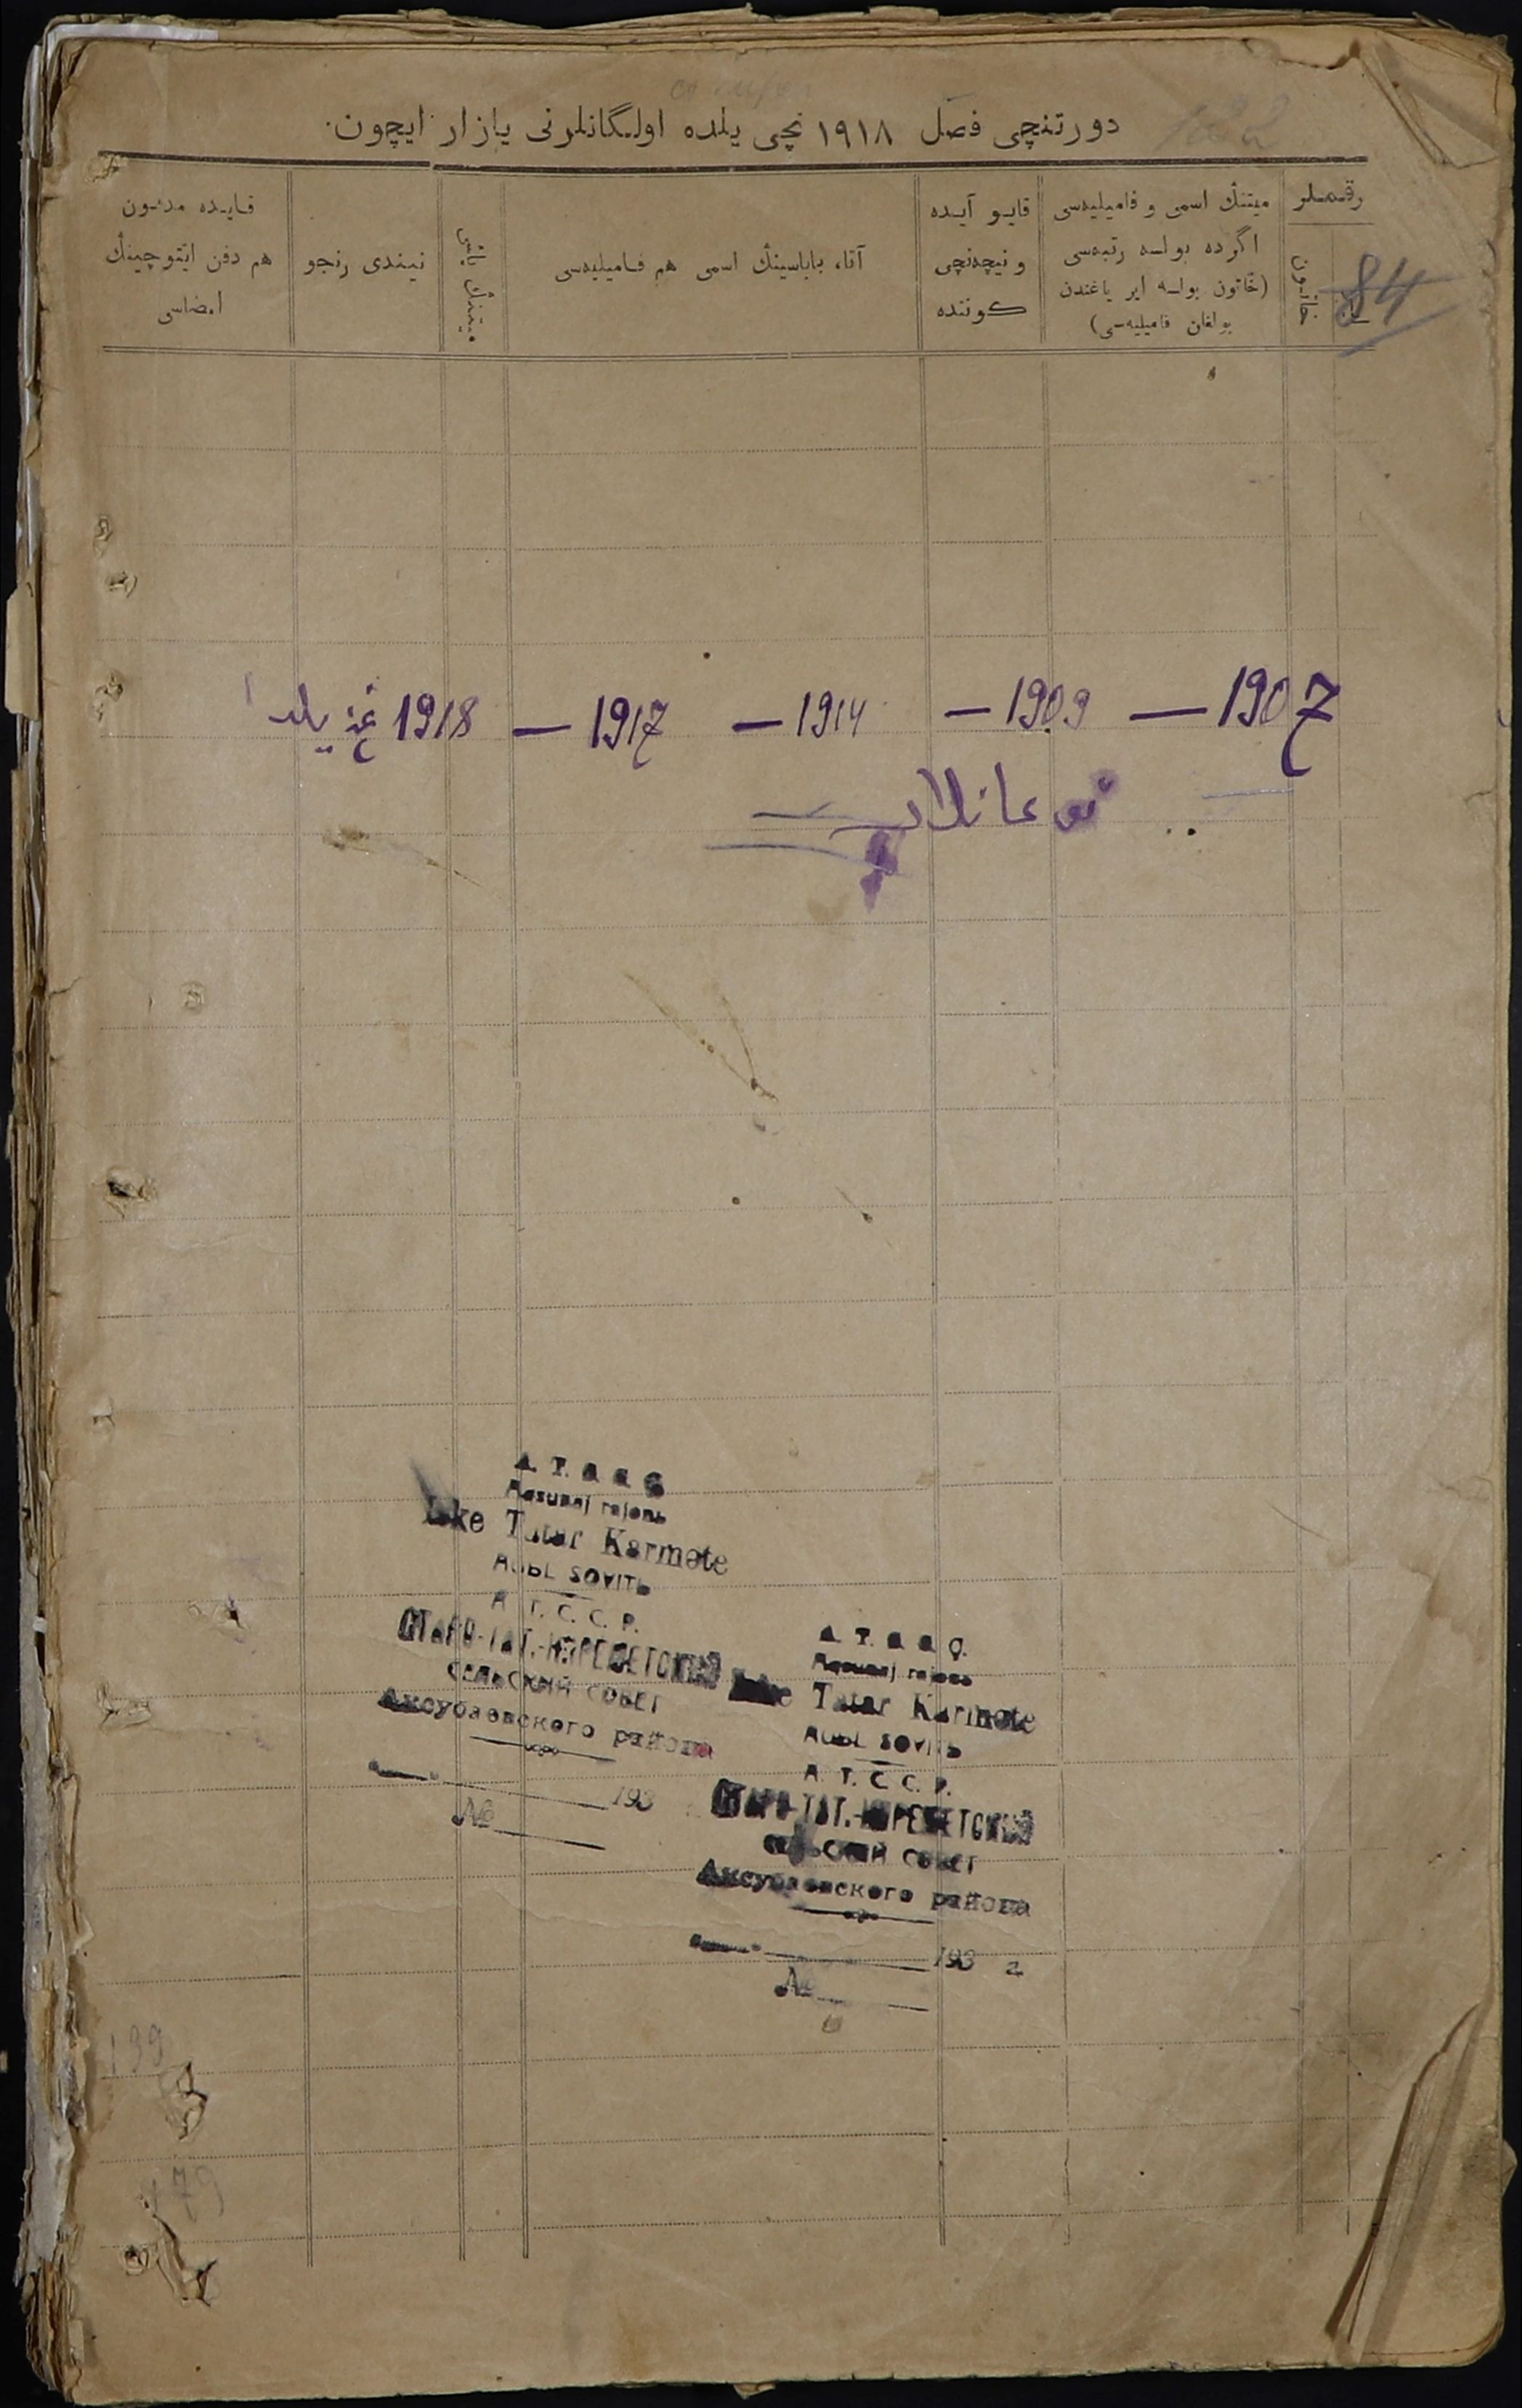 دورتنچی فصل ١٩١٨ نچی یلده اولگانلرنی یازار ایچون.
رقملر
خاتون
84
میتنڭ اسمی و فامیلیهسی
اگرده بولسه رتبهسی
(خاتون بولسه ایر یاغندن
بولغان فامیلیهسی)
قایو آیده
و نیچهنچی
کوننده
آتا، باباسینڭ اسمی هم فامیلیهسی
میتنڭ یاشی
نیندی رنجو
قایده مدفون
هم دفن ایتوچینڭ
امضاسی
1907 — 1909 — 1914 — 1917 — 1918 نچی یلدا
توغانلار
А.Т.
Aqsubaj rajonь
Iske Tatar Karmәte
AUЬL SOVITЬ
А Т. С. С. Р.
СТАРО-ТАТ.-КИРЕМЕТСКИЙ
СЕЛЬСКИЙ СОВЕТ
Аксубаевского района
193
№
А.Т.
Aqsubaj rajonь
Iske Tatar Karmәte
AUЬL SOVITЬ
А. Т. С С. Р.
СТАРО-ТАТ.-КИРЕМЕТСКИЙ
СЕЛЬСКИЙ СОВЕТ
Аксубаевского района
193 г
№
139
179